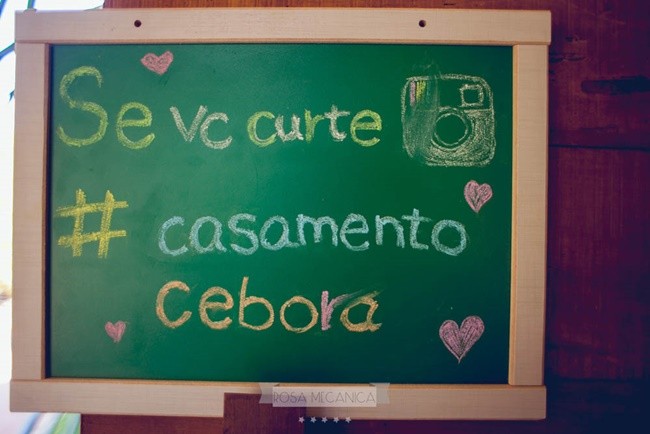 Se vc curte
# casamento
cebora
ROSA MECANICA